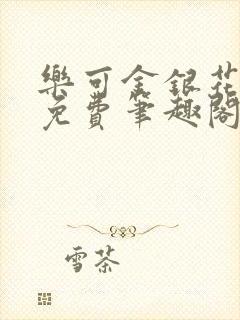 樂可金銀花
免費筆趣閣
雪茶